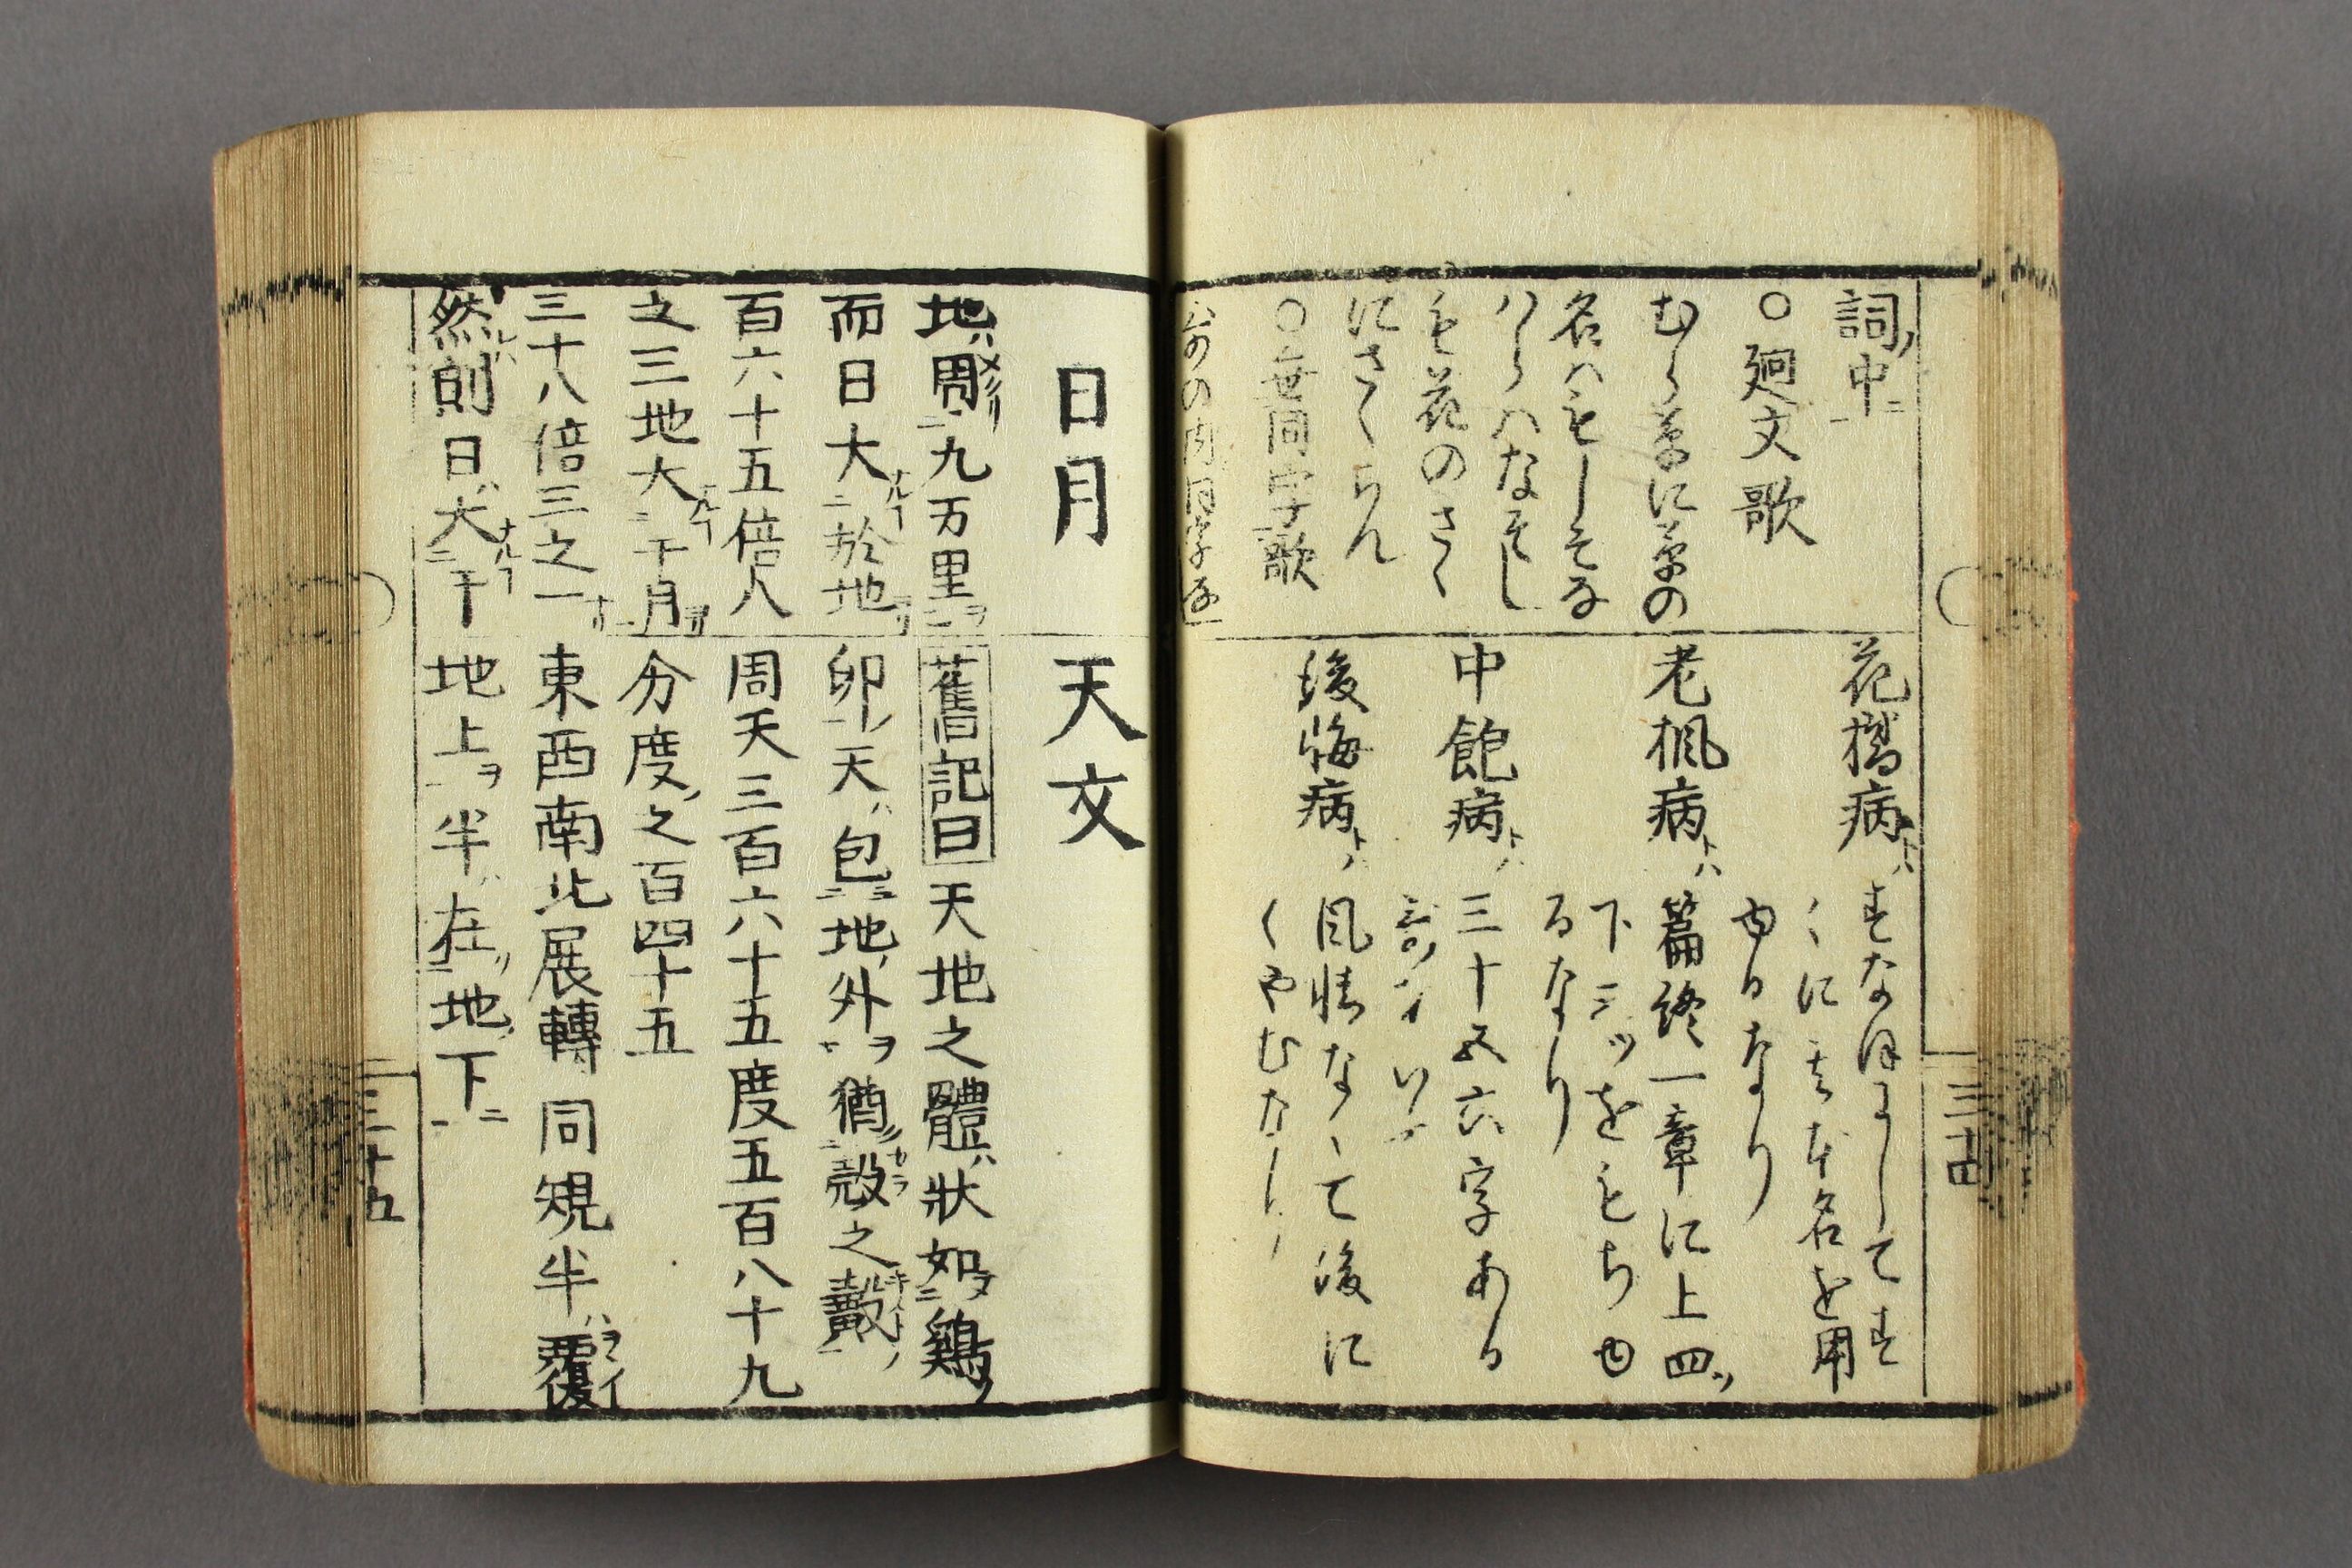 詞ノ中ニ
○廻文歌
むら草に草の
名はもしそな
はらはなそし
も花のさく
にさくらん
○無同字歌
花橘病トハ
すなほにして す
くに其本名を用
ゆるなり
老楓病トハ
篇終一章に上四ツ
下三ツをもちゆ
るなり
中飽病トハ
三十五六字ある
後悔病トハ
風情なくて後に
くやむなり
三十四
日月
地ハ周リ九万里
而日大ナルコ於地ヨリ
百六十五倍八
之三地大ナルコ于月ヨリ
三十八倍三之一
然則日ハ大ナルコ于
天文
舊記曰 天地之體ハ狀如鷄ノ
卵ノ天ハ包地ノ外ヲ猶殻之
周天三百六十五度五百八十九
分度ノ之百四十五
東西南北展轉同規半ハ覆
地上ヲ半ハ在地ノ下ニ
三十五